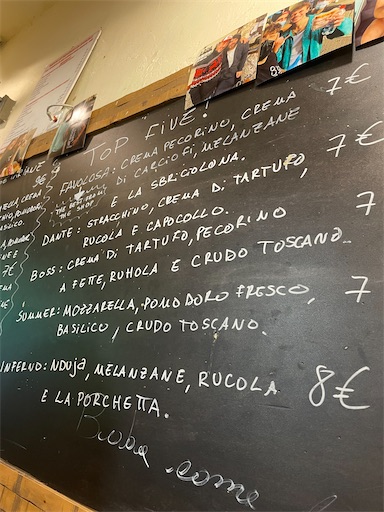 TOP FIVE!
FAVOLOSA: CREMA PECORINO, CREMA 7€
DI CARCIOFI, MELANZANE
E LA SBRICIOLONA.
DANTE: STRACCHINO, CREMA DI TARTUFO, 7€
RUCOLA E CAPOCOLLO.
BOSS: CREMA DI TARTUFO, PECORINO 7
A FETTE, RUHOLA E CRUDO TOSCANO.
SUMMER: MOZZARELLA, POMODORO FRESCO, 7
BASILICO, CRUDO TOSCANO.
INFERNO: NDUJA, MELANZANE, RUCOLA 8€
E LA PORCHETTA.
come